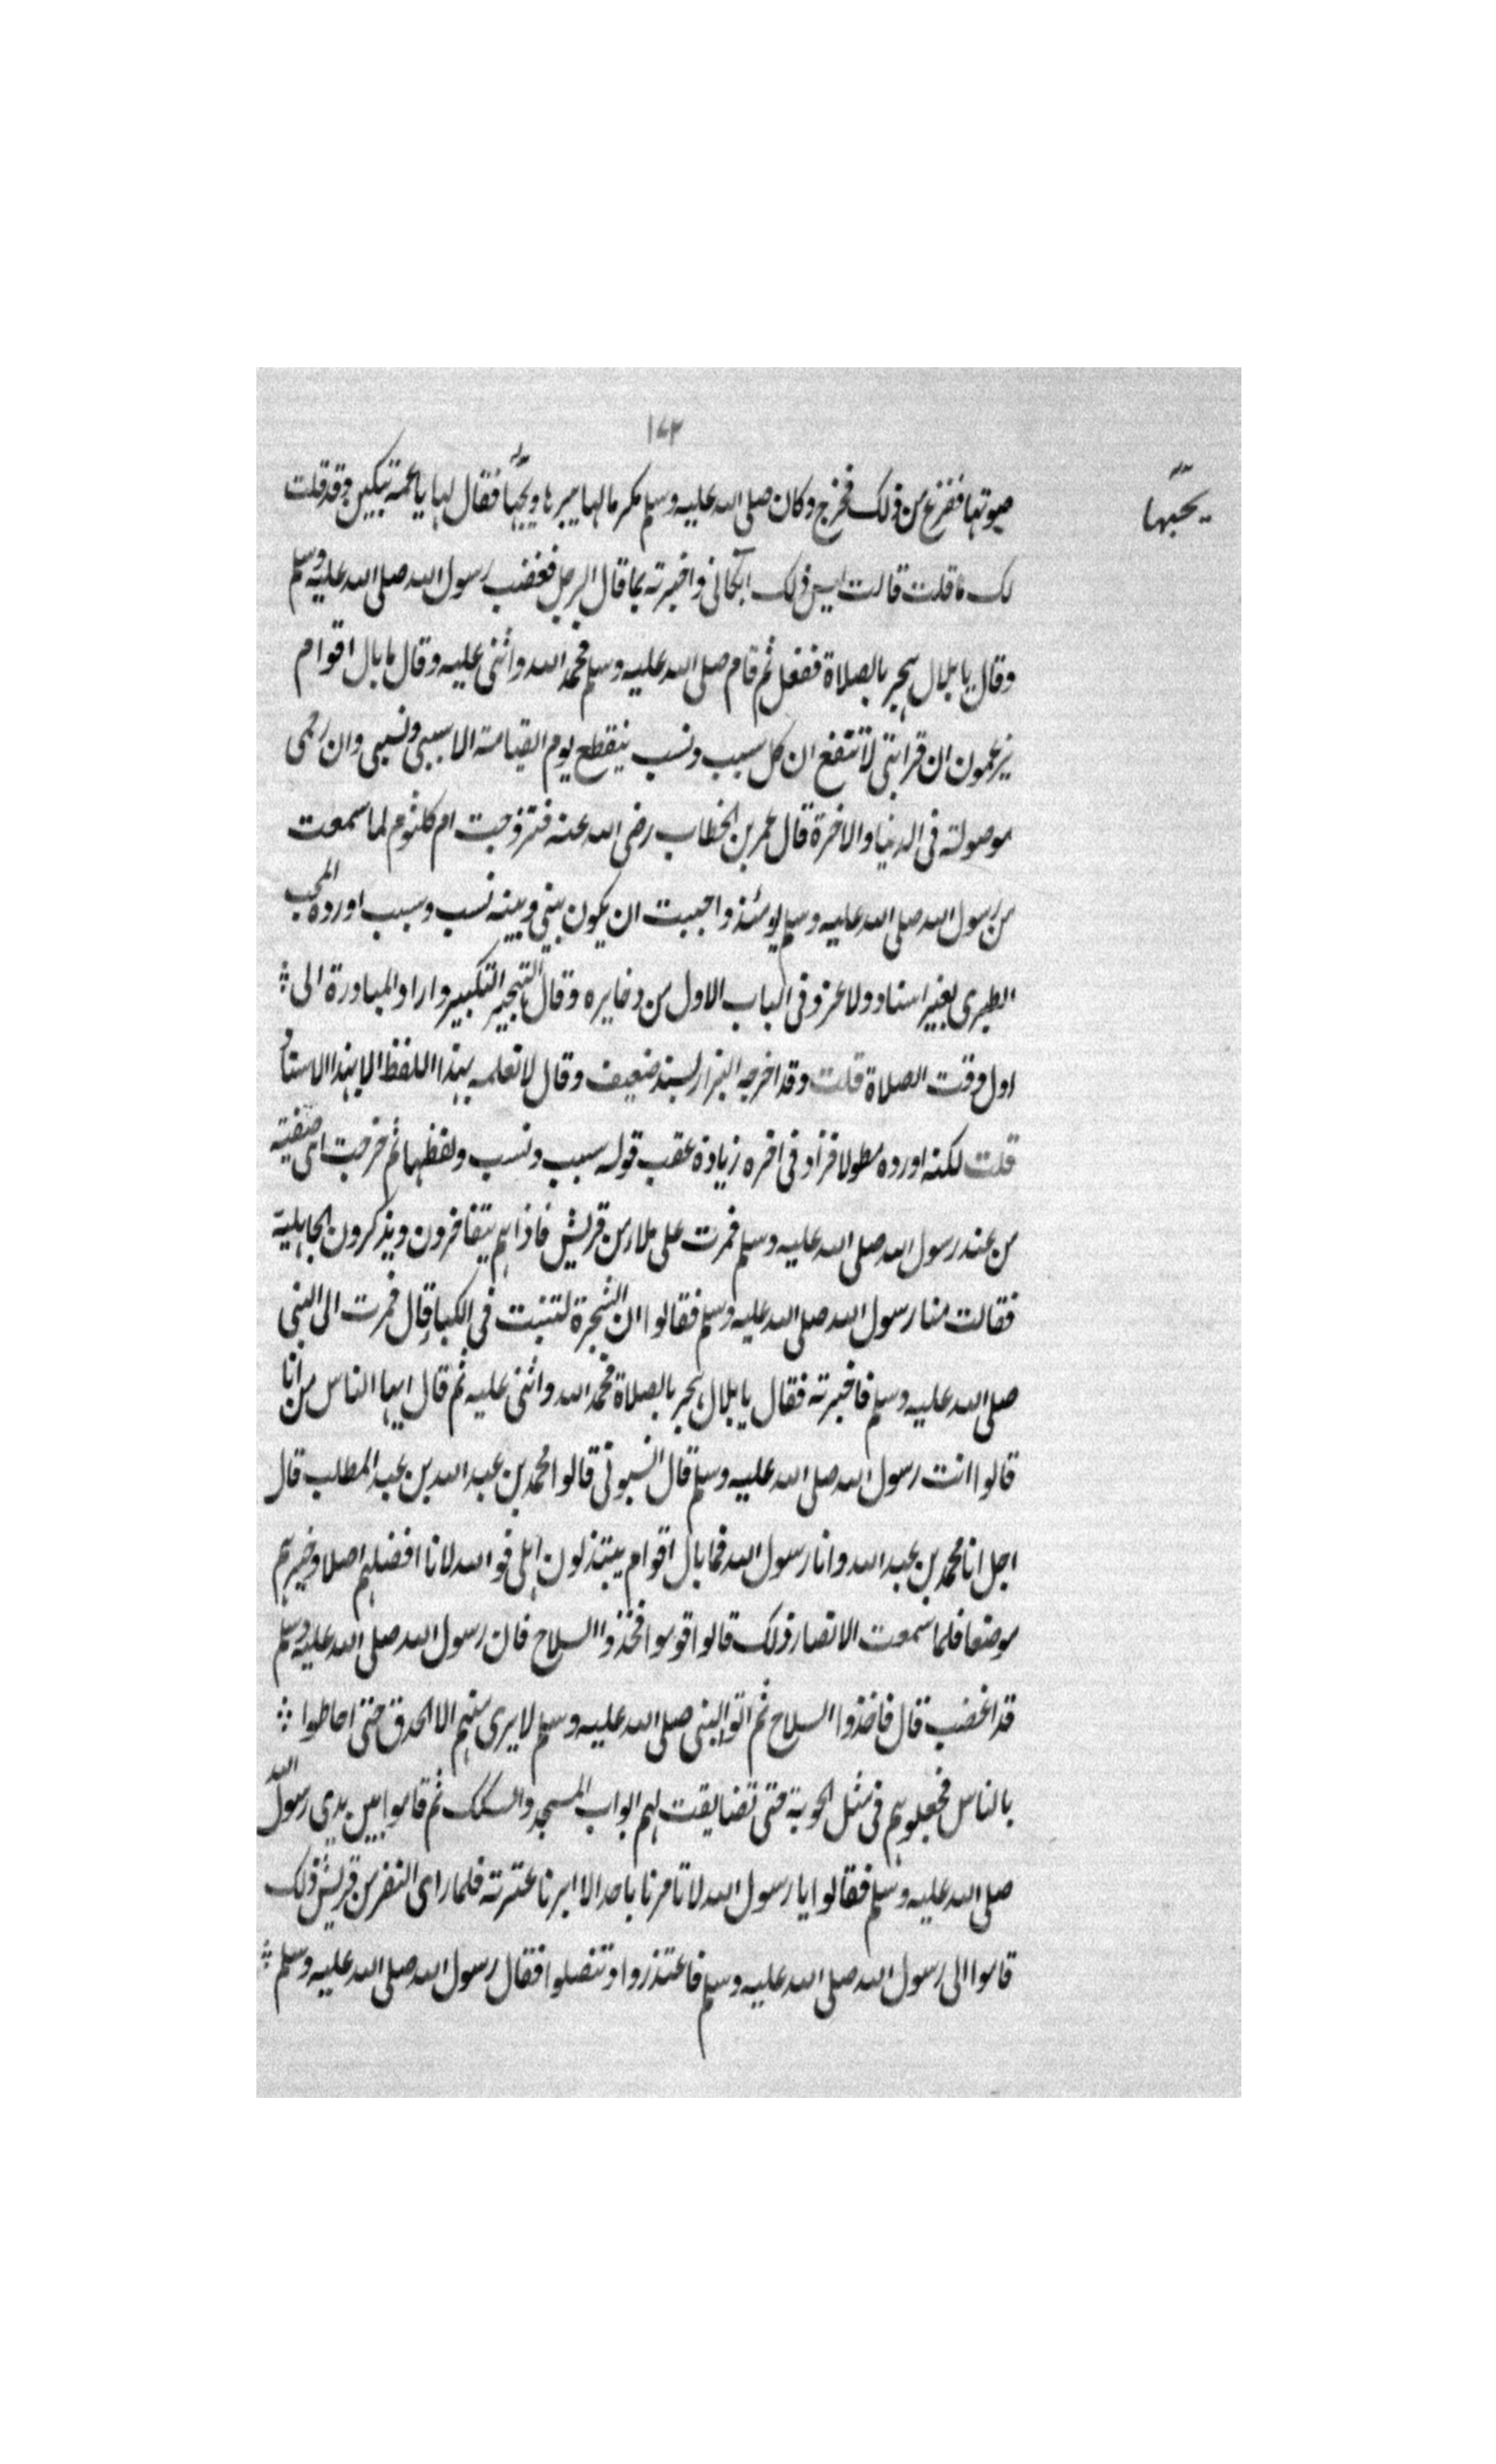 ١٧٣
يحبّها
صوتها ففزع من ذلك فخرج وكان صلى الله عليه وسلم مكرما لها يبرها ويحبّها فقال لها يا عمة تبكين وقد قلت
لك ما قلت قالت ليس ذلك ابكاني واخبرته بما قال الرجل فغضب رسول الله صلى الله عليه وسلم
وقال يا بلال هجر بالصلاة ففعل ثم قام صلى الله عليه وسلم فحمد الله واثنى عليه وقال ما بال اقوام
يزعمون ان قرابتي لا تنفع ان كل سبب ونسب ينقطع يوم القيامة الا سببي ونسبي وان رحمي
موصولة في الدنيا والاخرة قال عمر بن الخطاب رضى الله عنه فتزوجت ام كلثوم لما سمعت
من رسول الله صلى الله عليه وسلم يومئذ واحببت ان يكون بيني وبينه نسب وسبب اورده المحب
الطبري بغير اسناد ولا عزو في الباب الاول من دخايره وقال التهجير التكبير واراد المبادرة الى
اول وقت الصلاة قلت وقد اخرجه البزار بسند ضعيف وقال لا نعلمه بهذا اللفظ الا بهذا الاسناد
قلت لكنه اورده مطولا فزاد في اخره زيادة عقب قوله سبب ونسب ولفظها ثم خرجت اى صفية
من عند رسول الله صلى الله عليه وسلم فمرت على ملاء من قريش فاذا هم يتفاخرون ويذكرون الجاهلية
فقالت منا رسول الله صلى الله عليه وسلم فقالوا ان الشجرة لتنبت في الكبا قال فمرت الى النبي
صلى الله عليه وسلم فاخبرته فقال يا بلال هجر بالصلاة فحمد الله واثنى عليه ثم قال ايها الناس من انا
قالوا انت رسول الله صلى الله عليه وسلم قال انسبوني قالوا محمد بن عبد الله بن عبد المطلب قال
اجل انا محمد بن عبد الله وانا رسول الله فما بال اقوام يبتذلون اهلى فو الله لانا افضلهم اصلا وخيرهم
موضعا فلما سمعت الانصار ذلك قالوا قوموا فخذوا السلاح فان رسول الله صلى الله عليه وسلم
قد اغضب قال فاخذوا السلاح ثم اتوا النبي صلى الله عليه وسلم لا يرى منهم الا الحدق حتى احاطوا
بالناس فجعلوهم في مثل الحوبة حتى تضايقت بهم ابواب المسجد والسكك ثم قاموا بين يدي رسول الله
صلى الله عليه وسلم فقالوا يا رسول الله لا تامرنا باحد الا ابرنا عترته فلما راى النفر من قريش ذلك
قاموا الى رسول الله صلى الله عليه وسلم فاعتذروا وتنصلوا فقال رسول الله صلى الله عليه وسلم